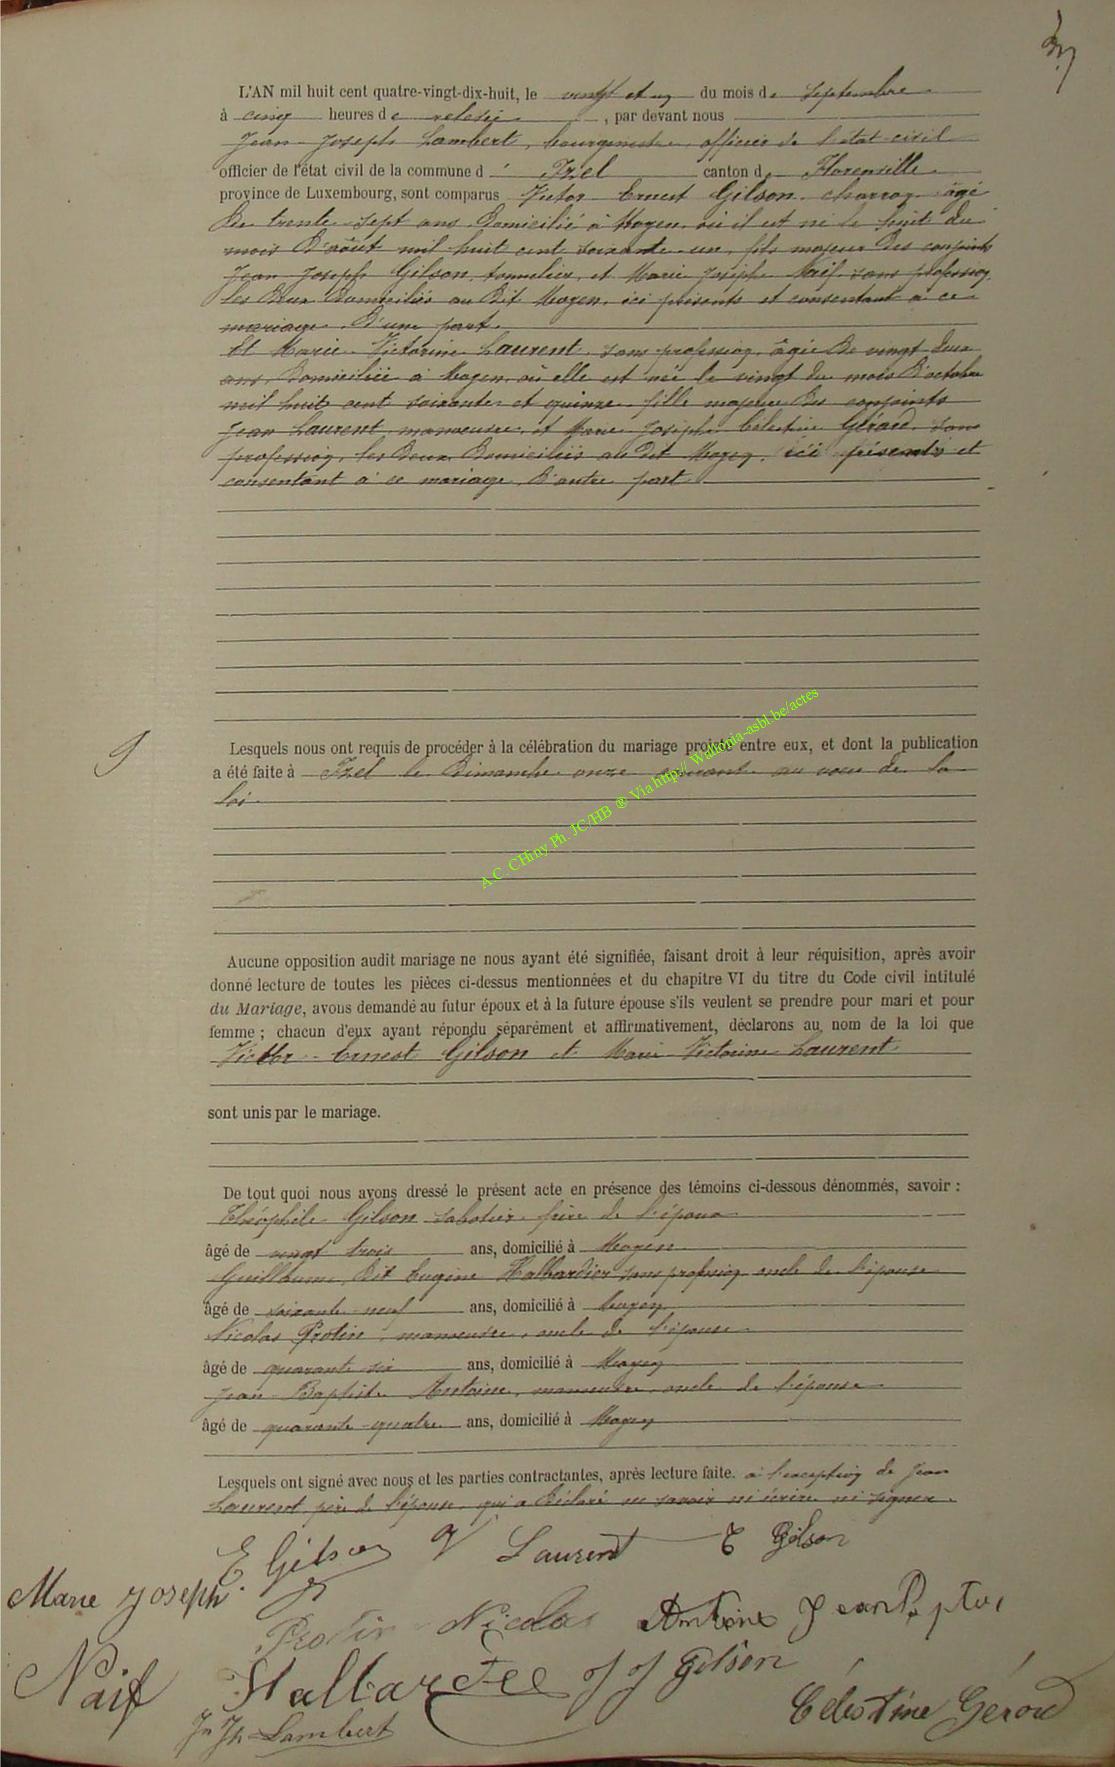 37
L'AN mil huit cent quatre-vingt-dix-huit, le vingt et un du mois de septembre
à cinq heures de relevée, par devant nous
Jean-Joseph Lambert, bourgmestre, officier de l'état-civil
officier de l'état civil de la commune d' Izel canton de Florenville
province de Luxembourg, sont comparus Victor Ernest Gilson charron âgé
de trente-sept ans, domicilié à Moyen, où il est né le huit du
mois d'août mil huit cent soixante-un, fils majeur des conjoints
Jean Joseph Gilson, tonnelier, et Marie Josèphe Naif sans profession,
les deux domiciliés au dit Moyen, ici présents et consentant à ce
mariage, d'une part.
Et Marie-Victorine Laurent, sans profession, âgée de vingt deux
ans, domiciliée à Moyen, où elle est née le vingt du mois d'octobre
mil huit cent soixante et quinze, fille majeure des conjoints
Jean Laurent manoeuvre, et Marie Josèphe Célestine Gérard, sans
profession, les deux domiciliés au dit Moyen, ici présents et
consentant à ce mariage, d'autre part
9
Lesquels nous ont requis de procéder à la célébration du mariage projeté entre eux, et dont la publication
a été faite à Izel le dimanche onze courant au voeu de la
loi.
A.C. CHiny Ph. JC/HB ® Via http:// Wallonia-asbl.be/actes
Aucune opposition audit mariage ne nous ayant été signifiée, faisant droit à leur réquisition, après avoir
donné lecture de toutes les pièces ci-dessus mentionnées et du chapitre VI du titre du Code civil intitulé
du Mariage, avons demandé au futur époux et à la future épouse s'ils veulent se prendre pour mari et pour
femme ; chacun d'eux ayant répondu séparément et affirmativement, déclarons au nom de la loi que
Victor-Ernest Gilson et Marie-Victorine Laurent
sont unis par le mariage.
De tout quoi nous avons dressé le présent acte en présence des témoins ci-dessous dénommés, savoir :
Théophile Gilson sabotier frère de l'époux
âgé de vingt trois ans, domicilié à Moyen
Guillaume dit Eugène Halbardier sans profession oncle de l'épouse
âgé de soixante-neuf ans, domicilié à Moyen
Nicolas Protin, manoeuvre, oncle de l'épouse
âgé de quarante six ans, domicilié à Moyen
Jean-Baptiste Antoine, manoeuvre, oncle de l'épouse
âgé de quarante-quatre ans, domicilié à Moyen
Lesquels ont signé avec nous et les parties contractantes, après lecture faite. à l'exception de Jean
Laurent père de l'épouse qui a déclaré ne savoir ni écrire ni signer.
E Gilson V Laurent T Gilson
Marie Joseph
Protin Nicolas Antoine Jean
Naif J J Gilson
Célestine Gérard
Jn Jh Lambert